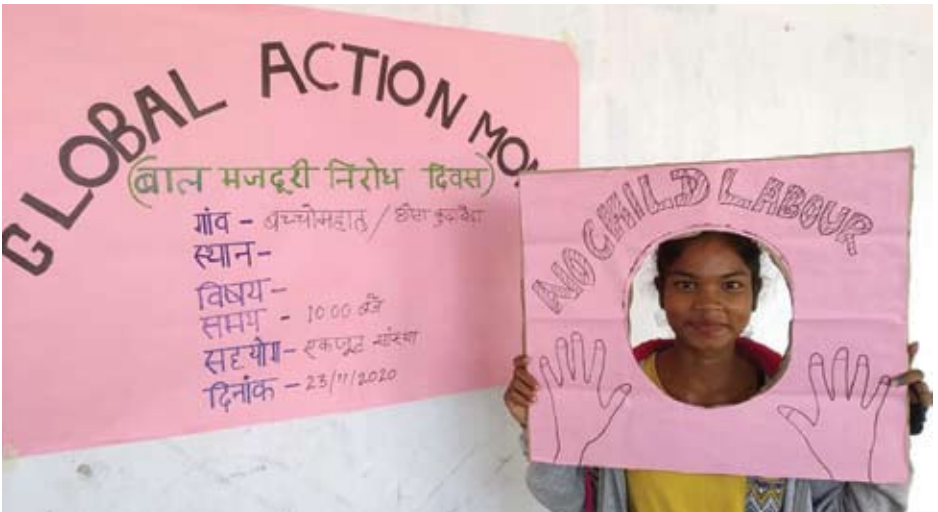 GLOBAL ACTION MO
(बाल मजदूरी निरोध दिवस)
गांव - बच्चोमहातु /
स्थान -
विषय -
समय - 10:00 बजे
सहयोग - एकजुट संस्था
दिनांक - 23/11/2020
NO CHILD LABOUR